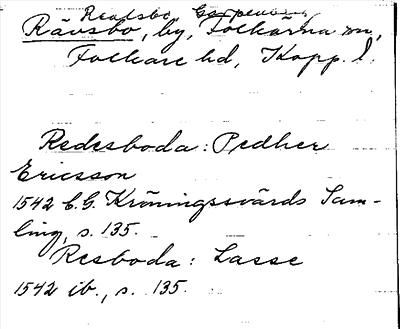 Readsbo, Garpenberg
Rävsbo, by, Folkärna sn,
Folkare hd, Kopp. l.
Redesboda: Pedher
Ericsson
1542 C.G. Kröningssvärds Sam-
ling, s. 135.
Resboda: Lasse
1542 ib., s. 135.